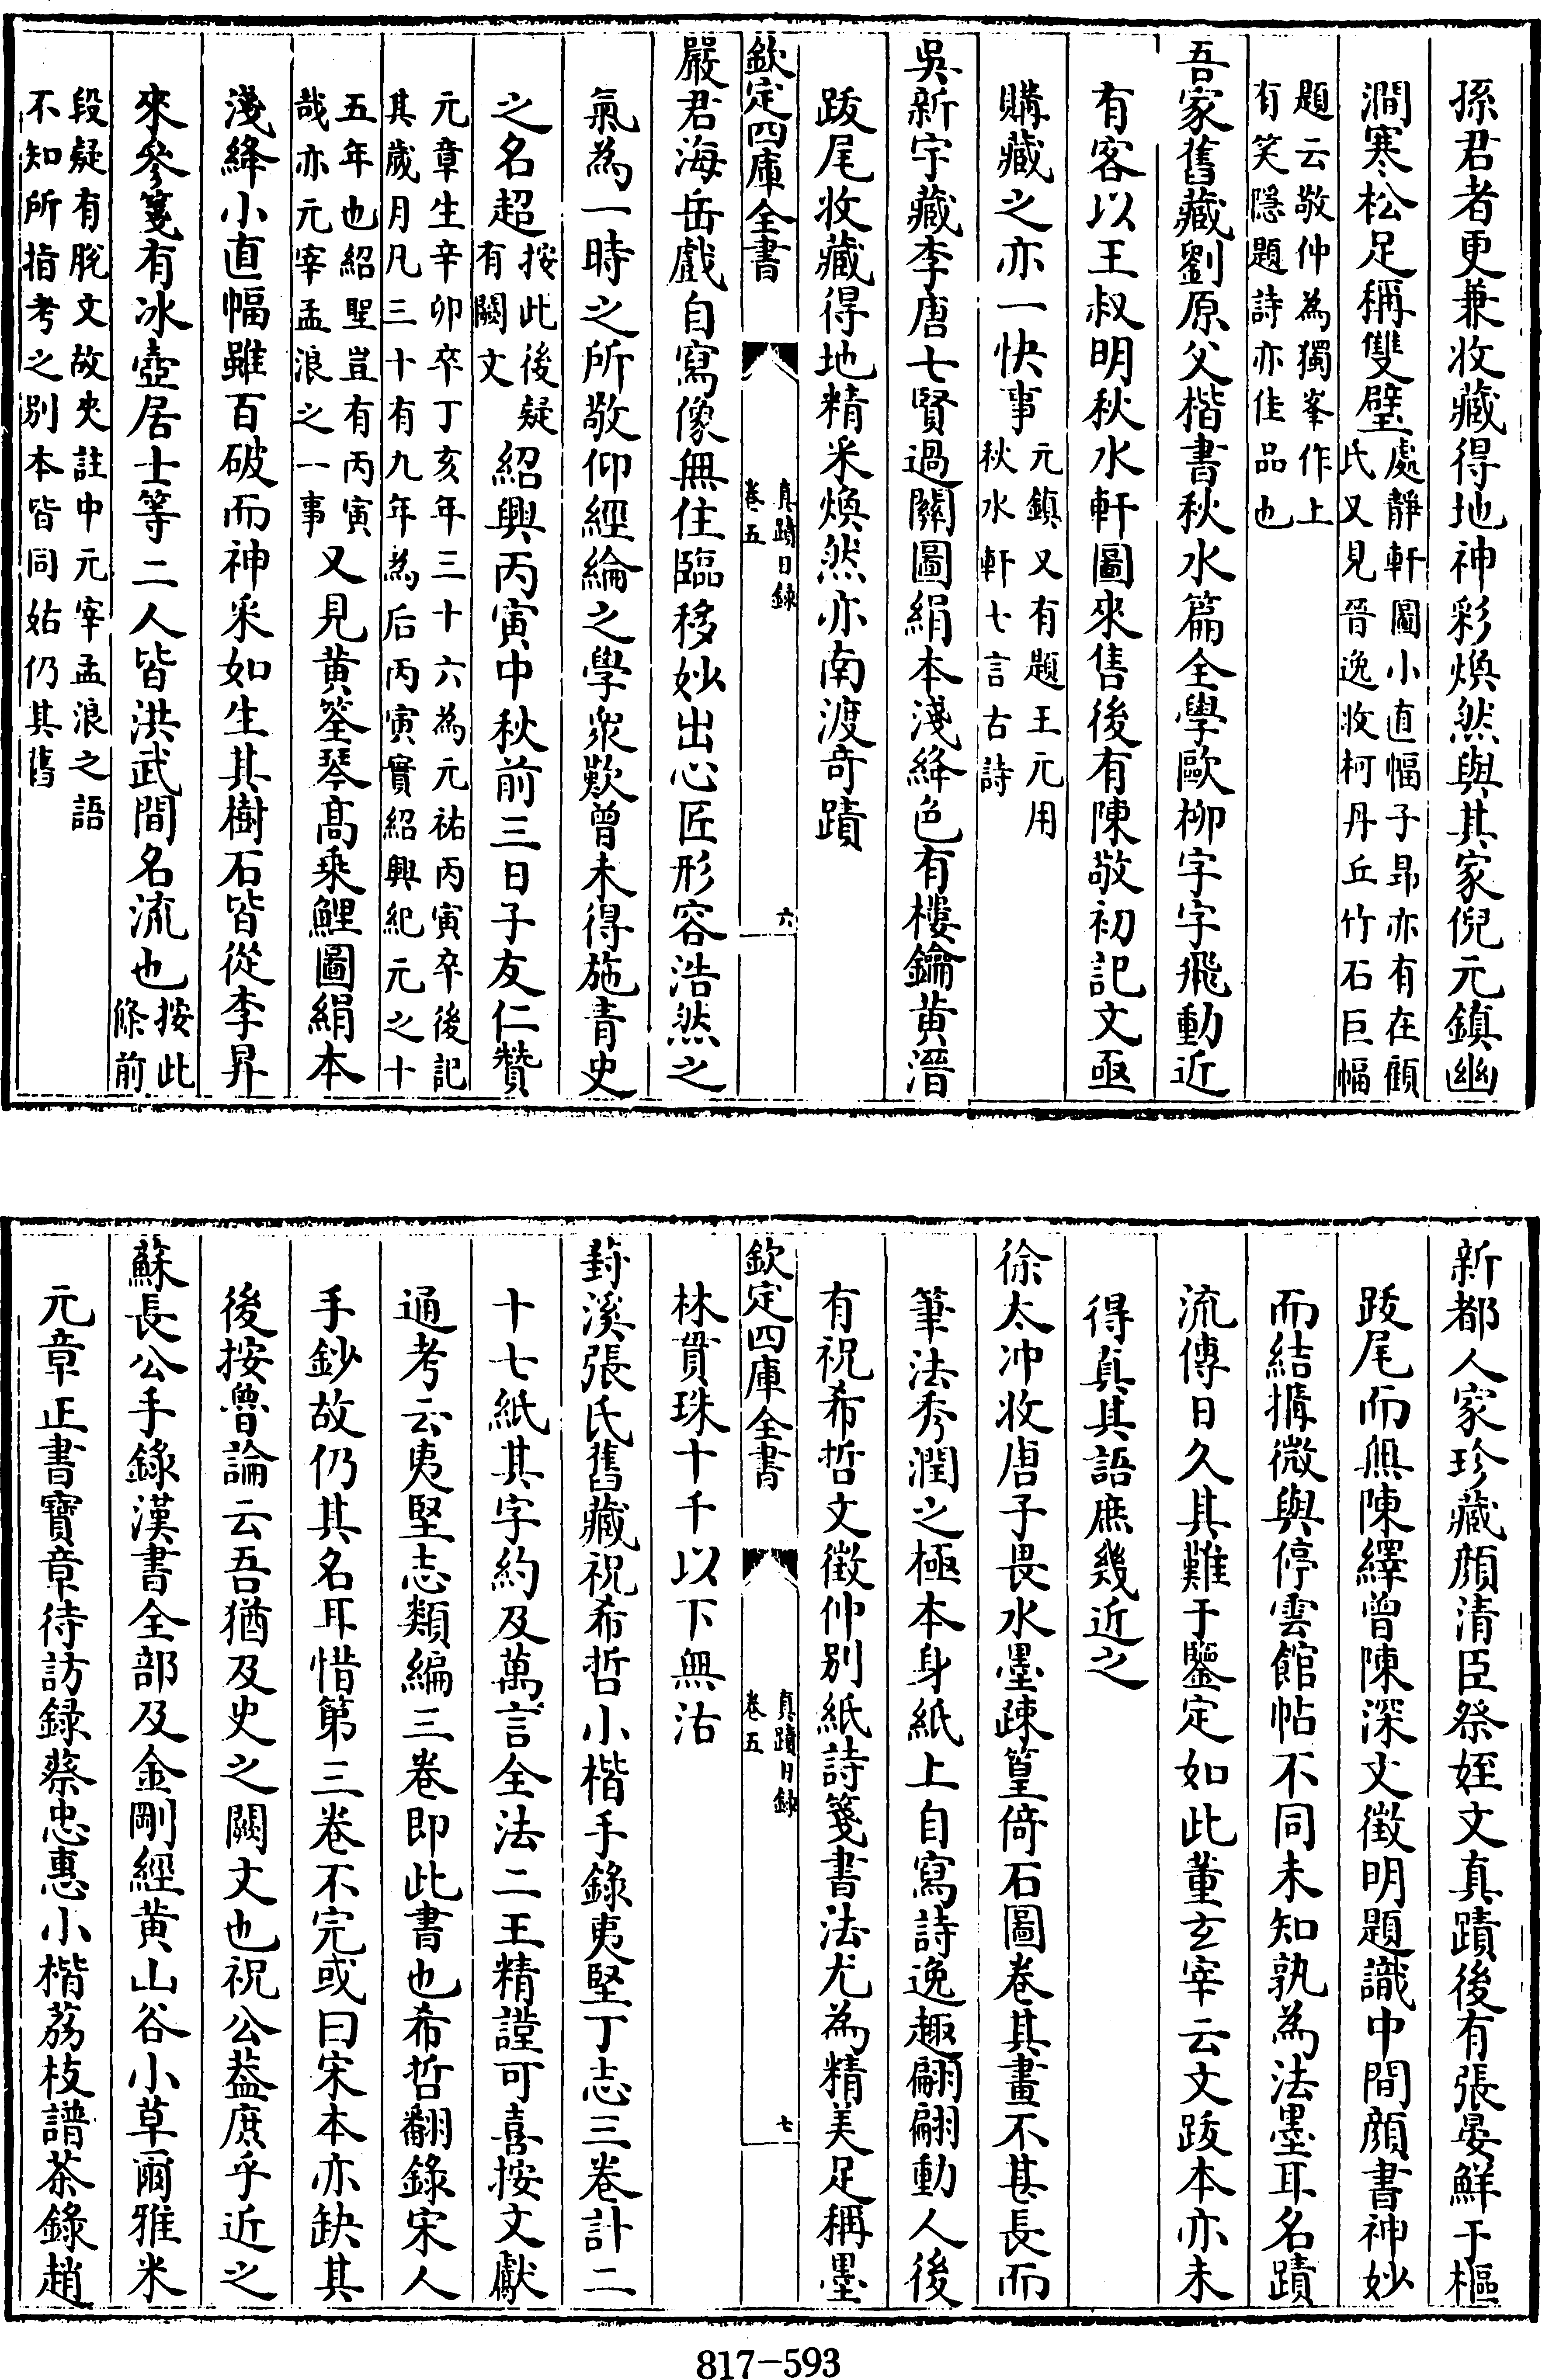 孫君者更兼收藏得地神彩煥然與其家倪元鎮幽
澗寒松足稱雙璧處靜軒圖小直幅子昻亦有在顧
氏又見晉逸收柯丹丘竹石巨幅
題云敬仲為獨峯作上
有笑隱題詩亦佳品也
吾家舊藏劉原父楷書秋水篇全學歐柳字字飛動近
有客以王叔明秋水軒圖來售後有陳敬初記文亟
購藏之亦一快事元鎮又有題王元用
秋水軒七言古詩
吳新宇藏李唐七賢過關圖絹本淺絳色有樓鑰黄溍
跋尾收藏得地精采煥然亦南渡奇蹟
欽定四庫全書
真蹟日錄
卷五
六
嚴君海岳戲自寫像無住臨移妙出心匠形容浩然之
氣為一時之所敬仰經綸之學衆歎曾未得施青史
之名超按此後疑
有闕文紹興丙寅中秋前三日子友仁贊
元章生辛卯卒丁亥年三十六為元祐丙寅卒後記
其歲月凡三十有九年為后丙寅實紹興紀元之十
五年也紹聖豈有丙寅
哉亦元宰孟浪之一事又見黄筌琴高乘鯉圖絹本
淺絳小直幅雖百破而神采如生其樹石皆從李昇
來參箋有冰壺居士等二人皆洪武間名流也按此
條前
段疑有脫文故夾註中元宰孟浪之語
不知所指考之别本皆同姑仍其舊
新都人家珍藏顔清臣祭姪文真蹟後有張晏鮮于樞
跋尾而無陳繹曾陳深文徵明題識中間顔書神妙
而結搆微與停雲館帖不同未知孰為法墨耳名蹟
流傳日久其難于鑒定如此董玄宰云文跋本亦未
得真其語庶幾近之
徐太沖收唐子畏水墨疎篁倚石圖卷其畫不甚長而
筆法秀潤之極本身紙上自寫詩逸趣翩翩動人後
有祝希哲文徵仲别紙詩箋書法尤為精美足稱墨
欽定四庫全書
真蹟日錄
卷五
七
林貫珠十千以下無沽
葑溪張氏舊藏祝希哲小楷手錄夷堅丁志三卷計二
十七紙其字約及萬言全法二王精謹可喜按文獻
通考云夷堅志類編三卷即此書也希哲翻錄宋人
手鈔故仍其名耳惜第三卷不完或曰宋本亦缺其
後按魯論云吾猶及史之闕文也祝公葢庶乎近之
蘇長公手錄漢書全部及金剛經黄山谷小草爾雅米
元章正書寶章待訪録蔡忠惠小楷荔枝譜茶錄趙
817-593